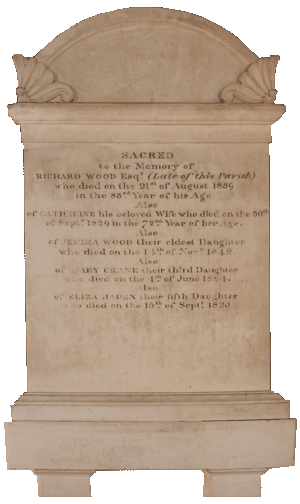 SACRED
to the Memory of
RICHARD WOOD Esqr. (Late of this Parish)
who died on the 21st of August 1839
in the 83rd Year of his Age
Also
of CATHERINE his beloved Wife who died on the 30th
of Septr. 1829 in the 72nd Year of her Age.
Also
of WOOD their eldest Daughter
who died on the of Novr.
Also
of MARY CRANE their third Daughter
who died on the 4th of June
Also
of ELIZA HADEN their fifth Daughter
who died on the 10th of Septr.